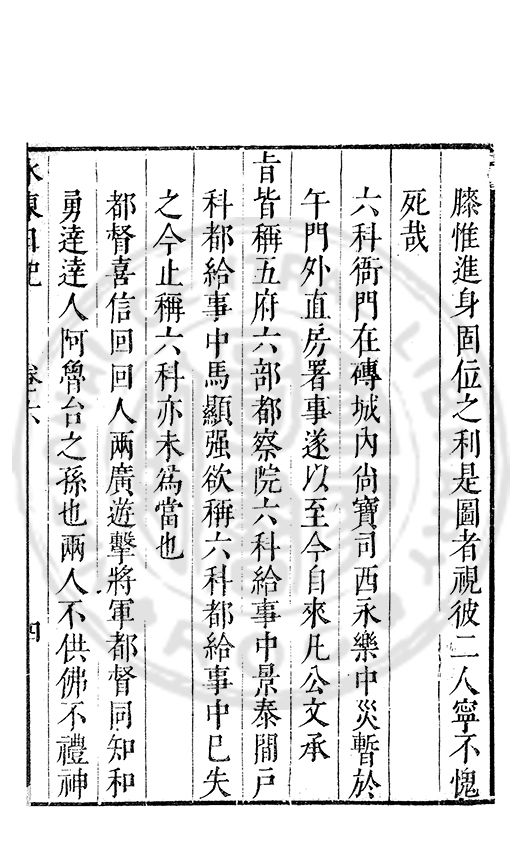 膝惟進身固位之利是圖者視彼二人寧不愧
死哉
六科衙門在磚城內尙寶司西永樂中災暫於
午門外直房署事遂以至今自來凡公文承
旨皆稱五府六部都察院六科給事中景泰間戸
科都給事中馬顯强欲稱六科都給事中巳失
之今止稱六科亦未爲當也
都督喜信回回人兩廣遊擊將軍都督同知和
勇達達人阿魯台之孫也兩人不供佛不禮神
水東日記　卷六　四